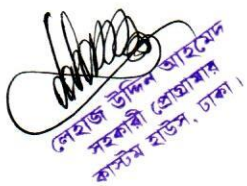 লেহাজ উদ্দিন আহমেদ
সহকারী প্রোগ্রামার
কাস্টম হাউস, ঢাকা।